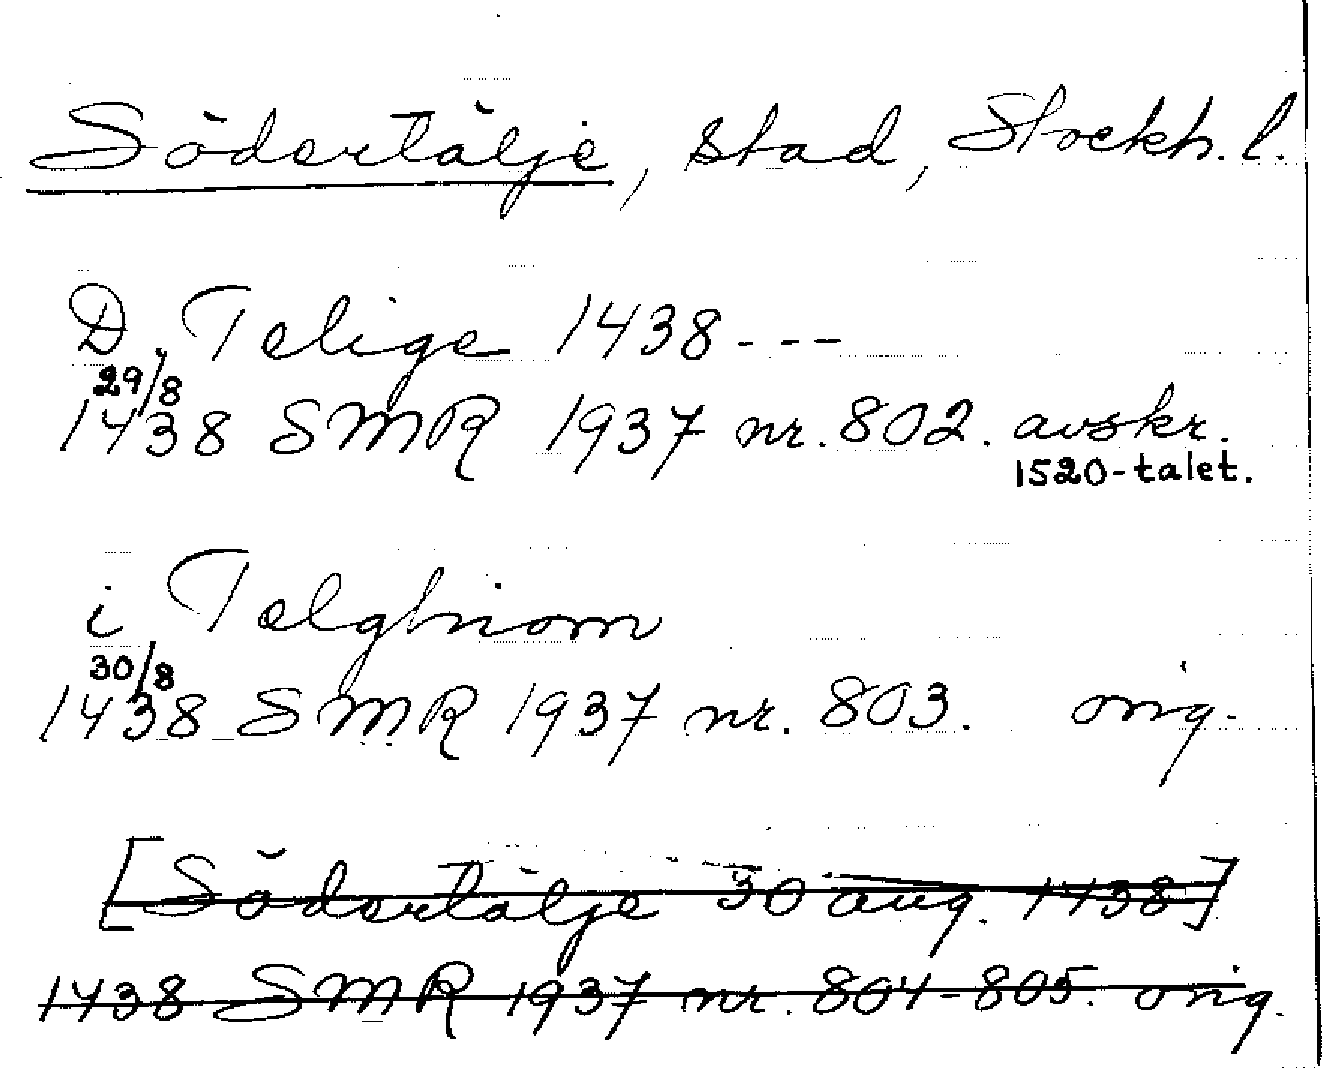 Södertälje, stad, Stockh. l.
D. Telige 1438---
29/8
1438 SMR 1937 nr. 802. avskr.
1520-talet.
i Telghiom
30/8
1438 SMR 1937 nr. 803. orig.
[Södertälje 30 aug. 1438]
1438 SMR 1937 nr. 804-805. orig.